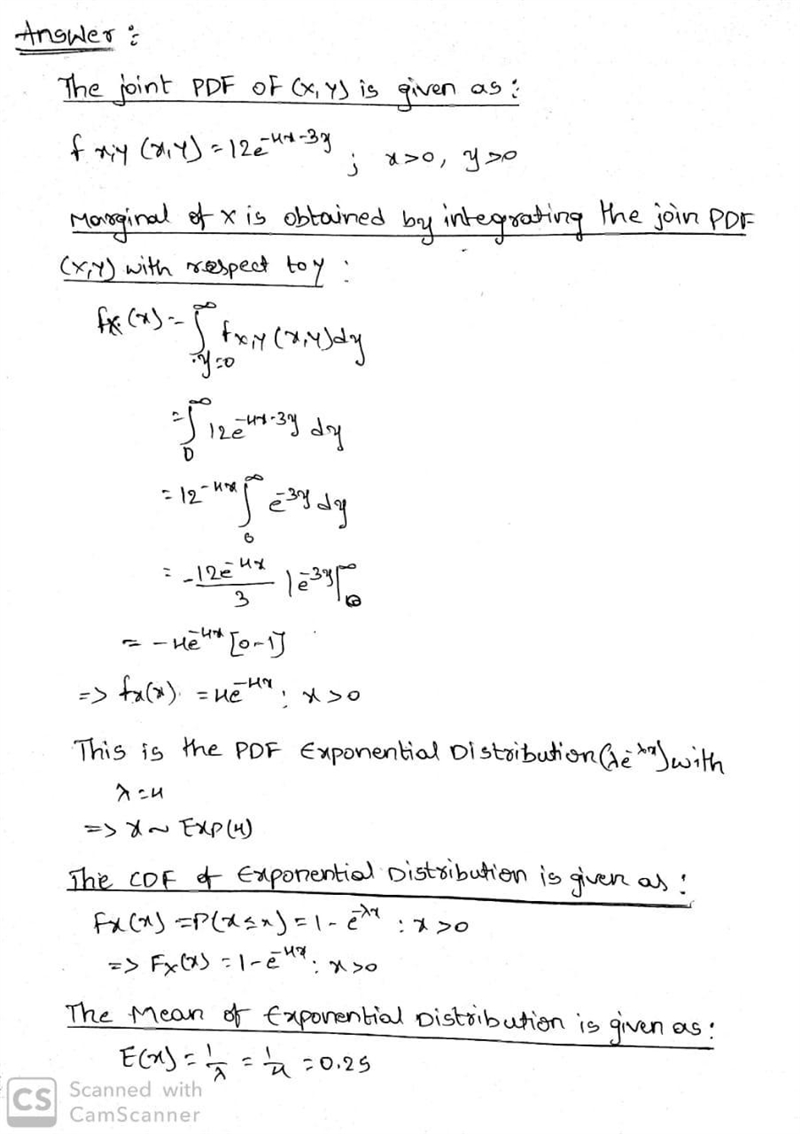 Answer :
The joint PDF OF (X,Y) is given as :
f x,y (x,y) = 12e^-4x-3y ; x>0, y>0
Marginal of x is obtained by integrating the join PDF
(X,Y) with respect to y :
fx (x) = ∫_{y=0}^∞ fx,y (x,y)dy
= ∫_0^∞ 12e^-4x-3y dy
= 12^-4x ∫_0^∞ e^-3y dy
= -12e^-4x / 3 |e^-3y|_0^∞
= -4e^-4x [0-1]
=> fx(x) = 4e^-4x ; x>0
This is the PDF Exponential Distribution (λe^-λx) with
λ=4
=> x ~ Exp(4)
The CDF of Exponential Distribution is given as :
Fx(x) = P(x≤x) = 1-e^-λx : x>0
=> Fx(x) = 1-e^-4x : x>0
The Mean of Exponential Distribution is given as :
E(x) = 1/λ = 1/4 = 0.25
CS Scanned with
CamScanner